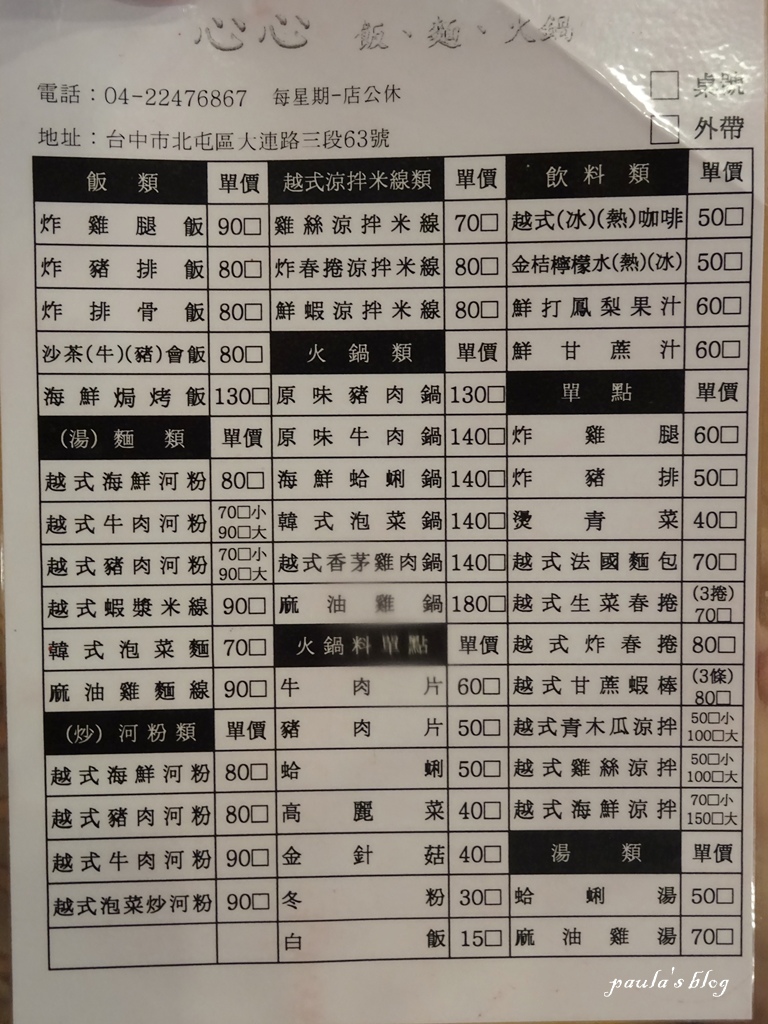 心心 飯、麵、火鍋
電話：04-22476867 每星期-店公休
□ 桌號
地址：台中市北屯區大連路三段63號
□ 外帶
飯類 單價
炸雞腿飯 90□
炸豬排飯 80□
炸排骨飯 80□
沙茶(牛)(豬)會飯 80□
海鮮焗烤飯 130□
(湯)麵類 單價
越式海鮮河粉 80□
越式牛肉河粉 70□小 90□大
越式豬肉河粉 70□小 90□大
越式蝦漿米線 90□
韓式泡菜麵 70□
麻油雞麵線 90□
(炒)河粉類 單價
越式海鮮河粉 80□
越式豬肉河粉 80□
越式牛肉河粉 90□
越式泡菜炒河粉 90□
越式涼拌米線類 單價
雞絲涼拌米線 70□
炸春捲涼拌米線 80□
鮮蝦涼拌米線 80□
火鍋類 單價
原味豬肉鍋 130□
原味牛肉鍋 140□
海鮮蛤蜊鍋 140□
韓式泡菜鍋 140□
越式香茅雞肉鍋 140□
麻油雞鍋 180□
火鍋料單點 單價
牛肉片 60□
豬肉片 50□
蛤蜊 50□
高麗菜 40□
金針菇 40□
冬粉 30□
白飯 15□
飲料類 單價
越式(冰)(熱)咖啡 50□
金桔檸檬水(熱)(冰) 50□
鮮打鳳梨果汁 60□
鮮甘蔗汁 60□
單點 單價
炸雞腿 60□
炸豬排 50□
燙青菜 40□
越式法國麵包 70□
越式生菜春捲 (3捲) 70□
越式炸春捲 80□
越式甘蔗蝦棒 (3條) 80□
越式青木瓜涼拌 50□小 100□大
越式雞絲涼拌 50□小 100□大
越式海鮮涼拌 70□小 150□大
湯類 單價
蛤蜊湯 50□
麻油雞湯 70□
paula's blog